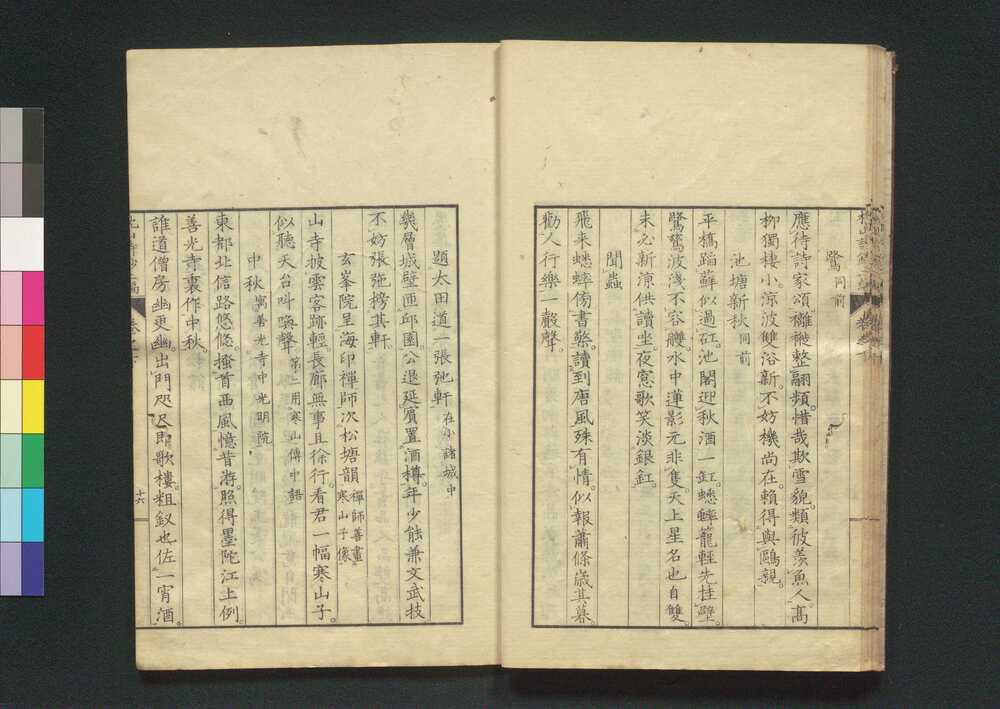 鷺 同前
應待詩家頌襤褷整翮頻惜哉欺雪貌類彼羨魚人高
柳獨棲小涼波雙浴新不妨機尚在賴得與鷗親
池塘新秋 同前
平橋蹈蘚似過矼池閣迎秋酒一缸蟋蟀籠輕先挂壁
鷺鶿波淺不容艭水中蓮影元非隻天上星名也自雙
未必新涼供讀坐夜窓歌笑淡銀缸
聞蟲
飛来蟋蟀傍書檠讀到唐風殊有情似報蕭條歲其暮
勸人行樂一聲聲
題太田道一張弛軒 在小諸城中
幾層城壁匝邱園公退延賓置酒樽年少能兼文武技
不妨張弛榜其軒
玄峯院呈海印禪師次松塘韻 禪師善畫寒山子像
山寺披雲客跡輕長廊無事且徐行看君一幅寒山子
似聽天台叫喚聲 第二用寒山傳中語
中秋 寓善光寺中光明院
東都北信路悠悠搔首西風憶昔游照得墨陀江上例
善光寺裏作中秋
誰道僧房幽更幽出門咫尺即歌樓粗釵也佐一宵酒
十六